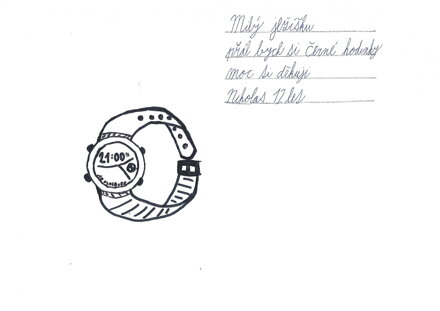 Milý ježíšku
přál bych si černé hodinky
moc ti děkuji
Nikolas 12 let
21:00